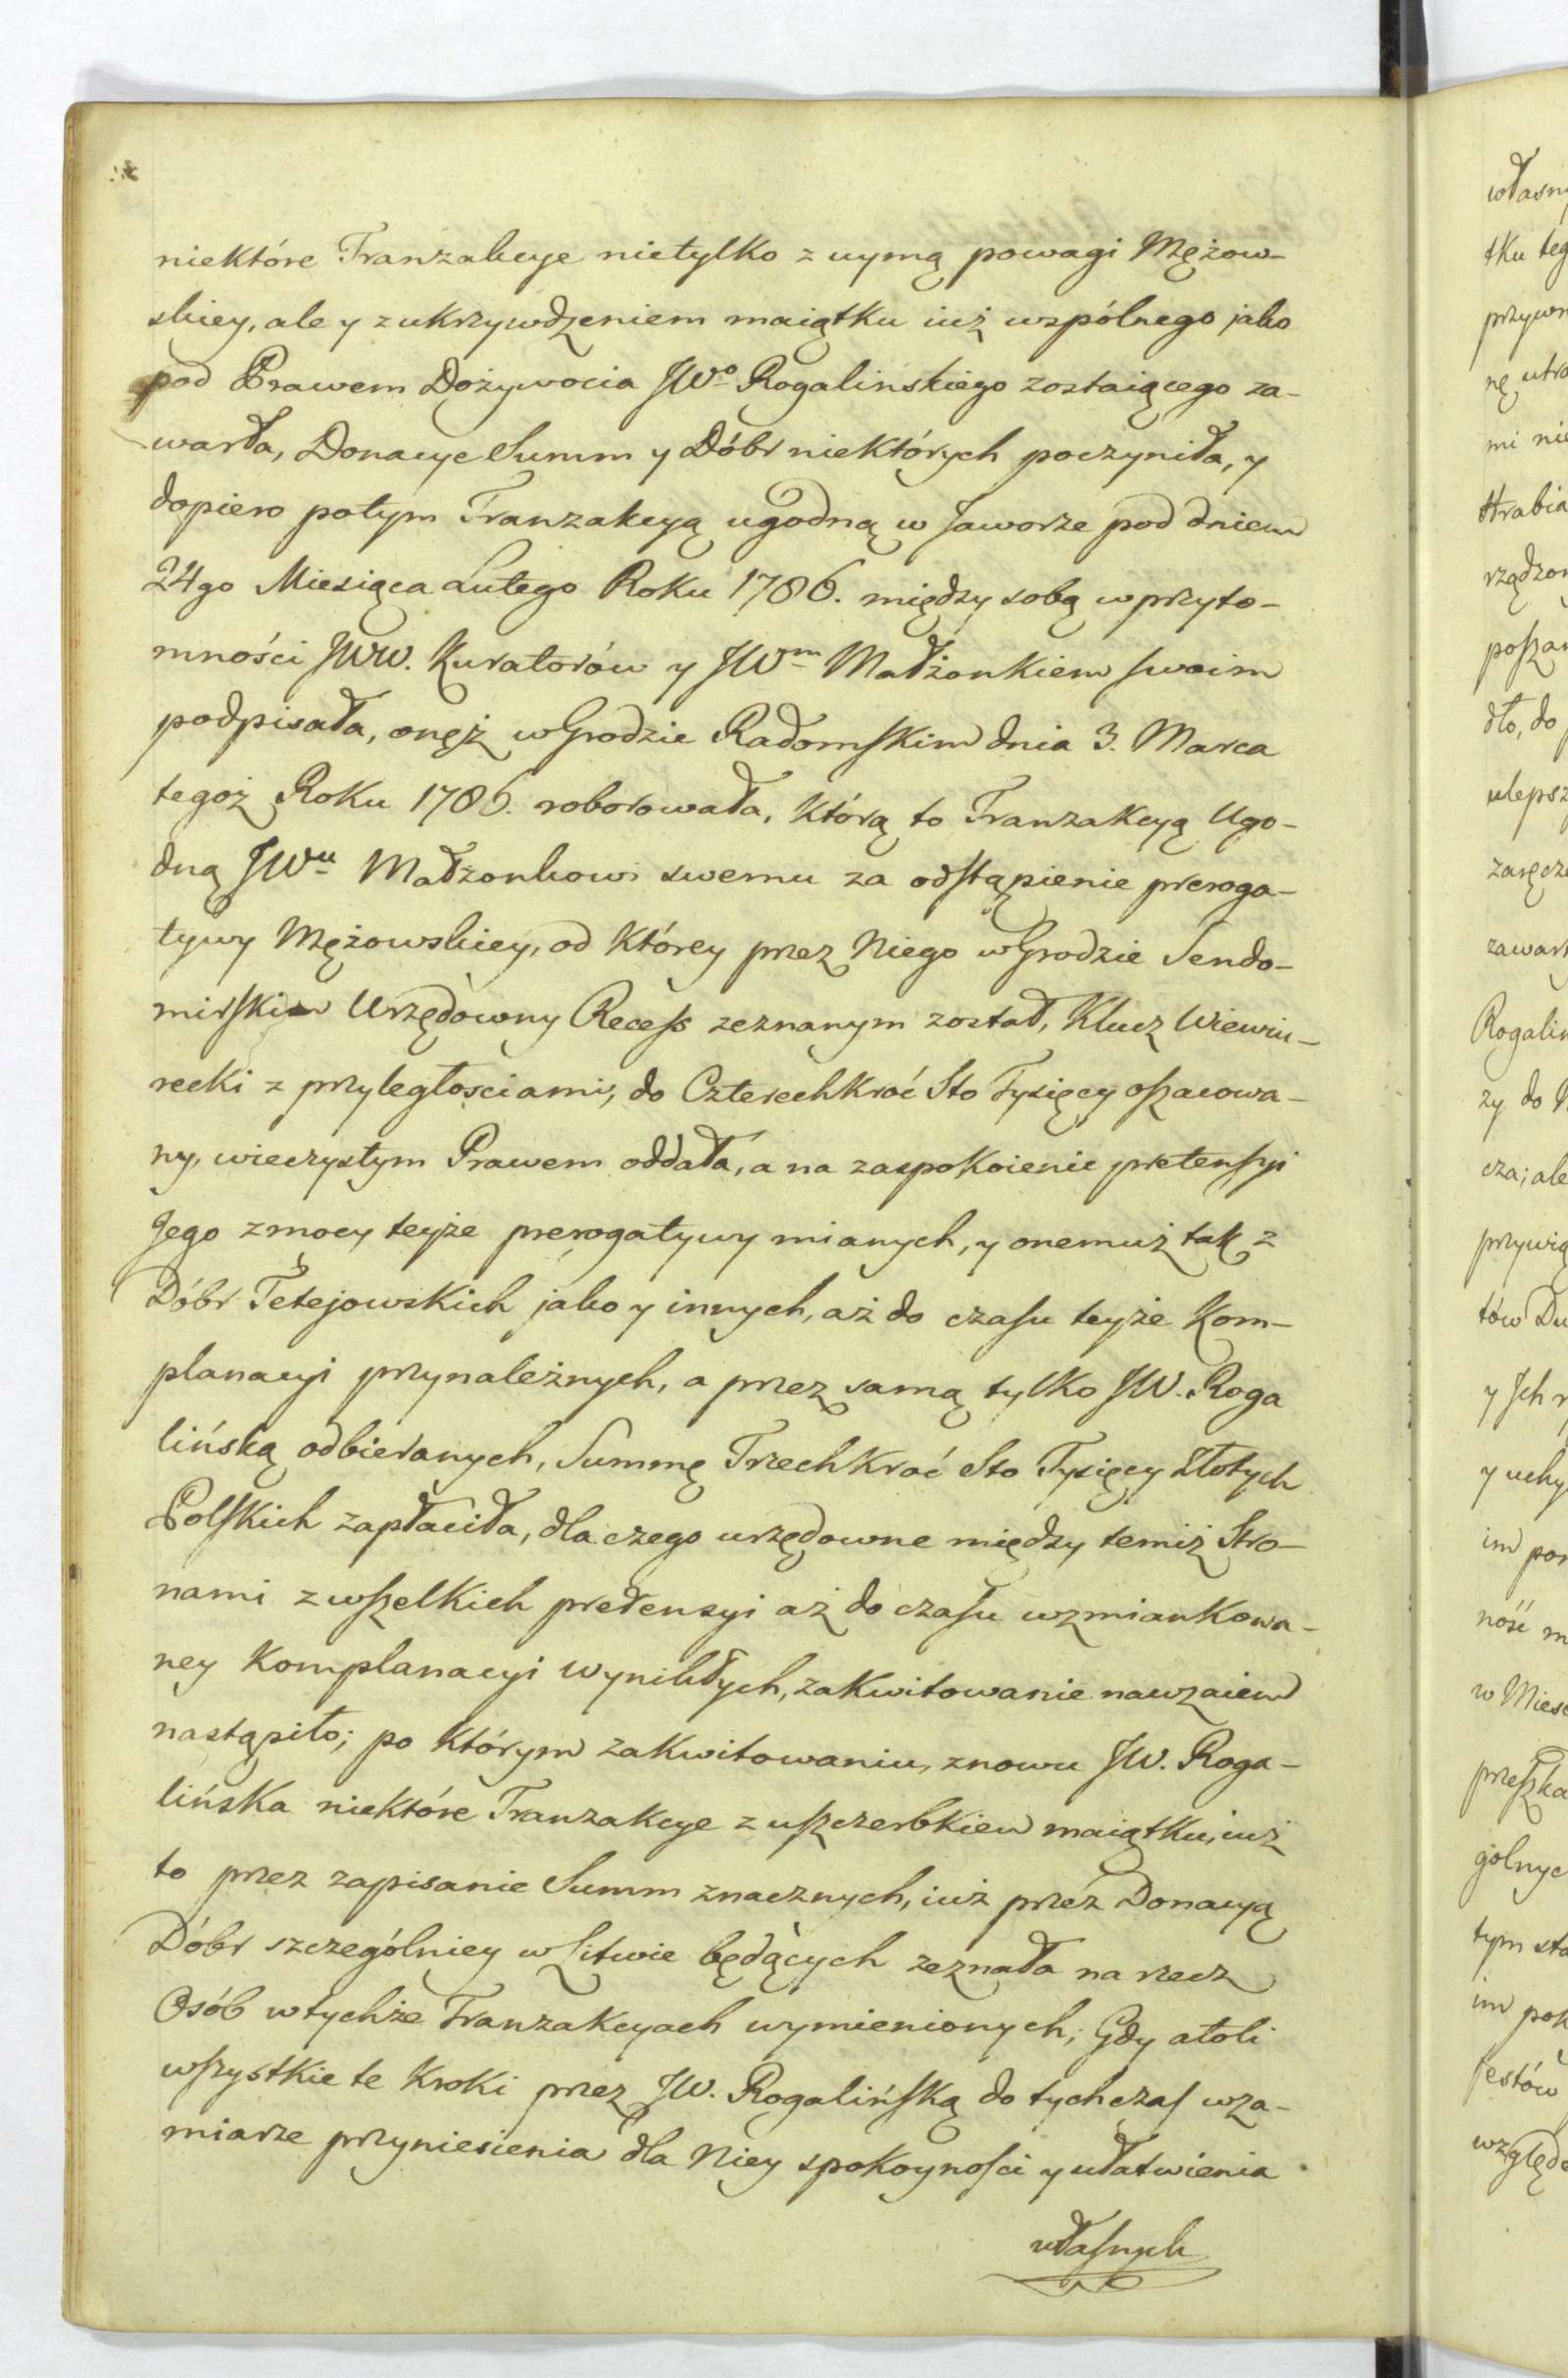 niektóre Tranzakcye nietylko z uymą powagi Mężow-
skiey, ale y z ukrzywdzeniem maiątku iuż wspólnego jako
pod Prawem Dożywocia JWo Rogalinskiego zostaiącego za-
warła, Donacye Summ y Dóbr niektórych poczyniła, y
dopiero potym Tranzakcyą ugodną w Jaworze pod dniem
24go Miesiąca Lutego Roku 1786. między sobą w przyto-
mności JWW. Kuratorów y JWm Małżonkiem swoim
podpisała, onęż w Grodzie Radomskim dnia 3. Marca
tegoż Roku 1786. roborowała, którą to Tranzakcyą Ugo-
dną JWu Małżonkowi swemu za odstąpienie preroga-
tywy Mężowskiey, od którey przez Niego w Grodzie Sendo-
mirskim Urzędowny Recess zeznanym został, Klucz Wiewiu-
recki z przyległościami, do Czterechkroć Sto Tysięcy oszacowa-
ny, wieczystym Prawem oddała, a na zaspokoienie pretensyi
Jego z mocy teyże prerogatywy mianych, y onemuż tak z
Dóbr Tetejowskich jako y innych, aż do czasu teyże Kom-
planacyi przynależnych, a przez samą tylko JW. Roga
lińską odbieranych, Summę Trzechkroć Sto Tysięcy Złotych
Polskich zapłaciła, dla czego urzędowne między temiż Stro-
nami z wszelkich pretensyi aż do czasu wzmiankowa-
ney Komplanacyi wynikłych, zakwitowanie nawzaiem
nastąpiło; po którym zakwitowaniu, znowu JW. Roga-
lińska niektóre Tranzakcye z uszczerbkiem maiątku, iuż
to przez zapisanie Summ znacznych, iuż przez Donacyą
Dóbr szczególniey w Litwie będących zeznała na rzecz
Osób w tychże Tranzakcyach wymienionych; Gdy atoli
wszystkie te kroki przez JW. Rogalińską do tychczas w za-
miarze przyniesienia dla Niey spokoyności y ułatwienia
własnych
własny
tku teg
przywr
nę utra
mi nie
Hrabia
rządzon
poszan
dło, do
ulepsz
zaręcze
zawart
Rogalin
zy do
cza; ale
przywią
tów Du
y Jch
y uchy
im por
ność m
w Miesc
przeszka
gólnyc
tym sta
im pok
jestów
względe